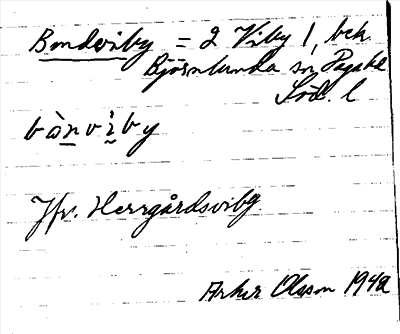 Bondviby = 2 Viby 1, bek.
Björnlunda sn Daga hd
Söd. l
bànvìby
Jfr. Herrgårdsviby
Olsson 1942